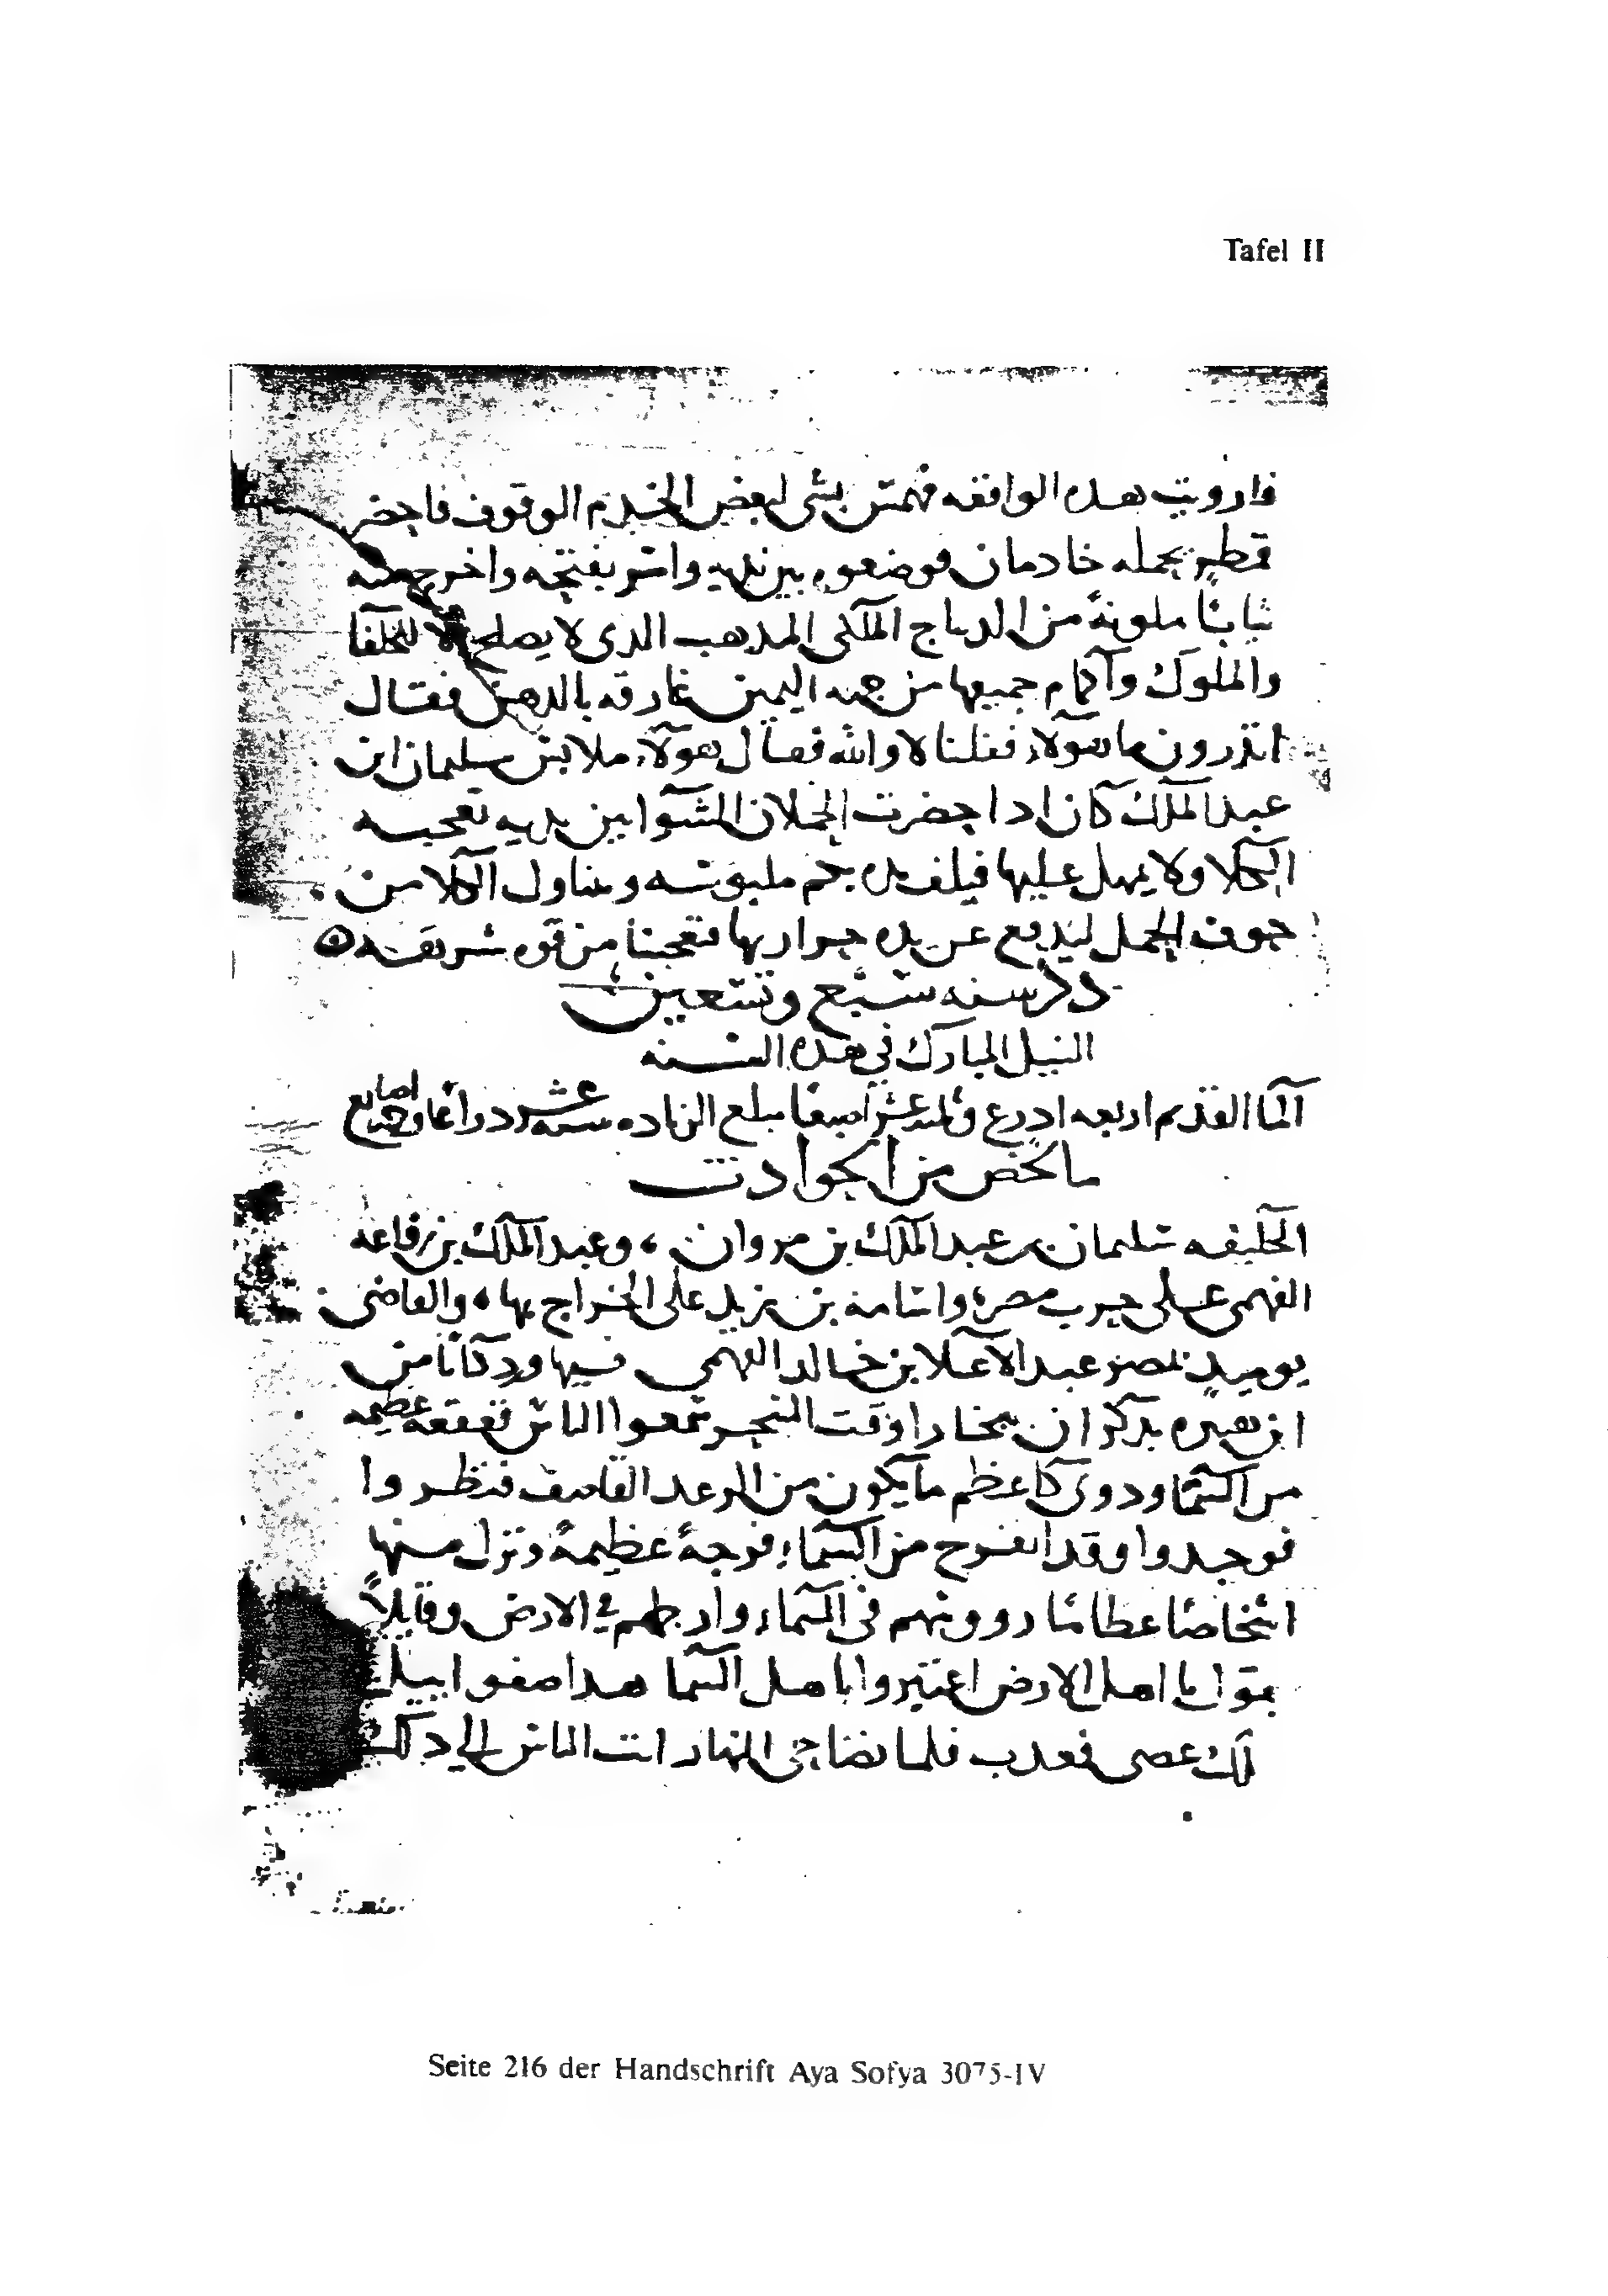 Tafel II
فارويت هذه الواقعه فهمس بشى لبعض الخدم الوقوف فاحضر
قمطر يحمله خادمان فوضعوه بين يديه وامر بفتحه واخرج منه
ثيابًا ملونةً من الديباج الملكى المذهب الذى لا يصلح الا للخلفا
والملوك وآكمام جميعها من جهه اليمين غارقه بالدهن فقال
اتدرون ما هولاء فقلنا لا والله فقال هولاء ملابس سليمان ابن
عبد الملك كان ادا حضرت الحملان الشوا بين يديه تعجبه
الكلا ولا يمهل عليها فيلف يده بكم ملبوسه ويتناول الكلا من
جوف الحمل ليدفع عن يده حرارتها فتعجبنا من قوه شر نفسه
ذكر سنه سبع وتسعين
النيل المبارك فى هذه السنه
الما القديم اربعه ادرع وثلثه عشر اصبعا مبلغ الزياده سبعه عشر دراعا وخمسه اصابع
ما لخص من الحوادث
الخليفه سليمان بن عبد الملك بن مروان، وعبد الملك بن رفاعه
الفهمى على حرب مصر، واسامه بن يزيد على الخراج بها، والقاضى
يوميدٍ بمصر عبد الاعلا بن خالد الفهمى فيها ورد كتابا من
ابن هبيره يدكر ان بخارا وقت الفجر سمعوا الناس قعقعه عظيمه
من السما ودوى كاعظم ما يكون من الرعد القاصف فنظروا
فوجدوا وقد انفرج من السماء فرجةً عظيمةً ونزل منها
اشخاصًا عظامًا رووسهم فى السماء وارجلهم فى الارض وقايلاً
يقول يا اهل الارض اعتبروا باهل السما هدا صفواييل
ملك عصى فعدب فلما اضا حى النهار اتت الناس الى دلك
Seite 216 der Handschrift Aya Sofya 3075-IV